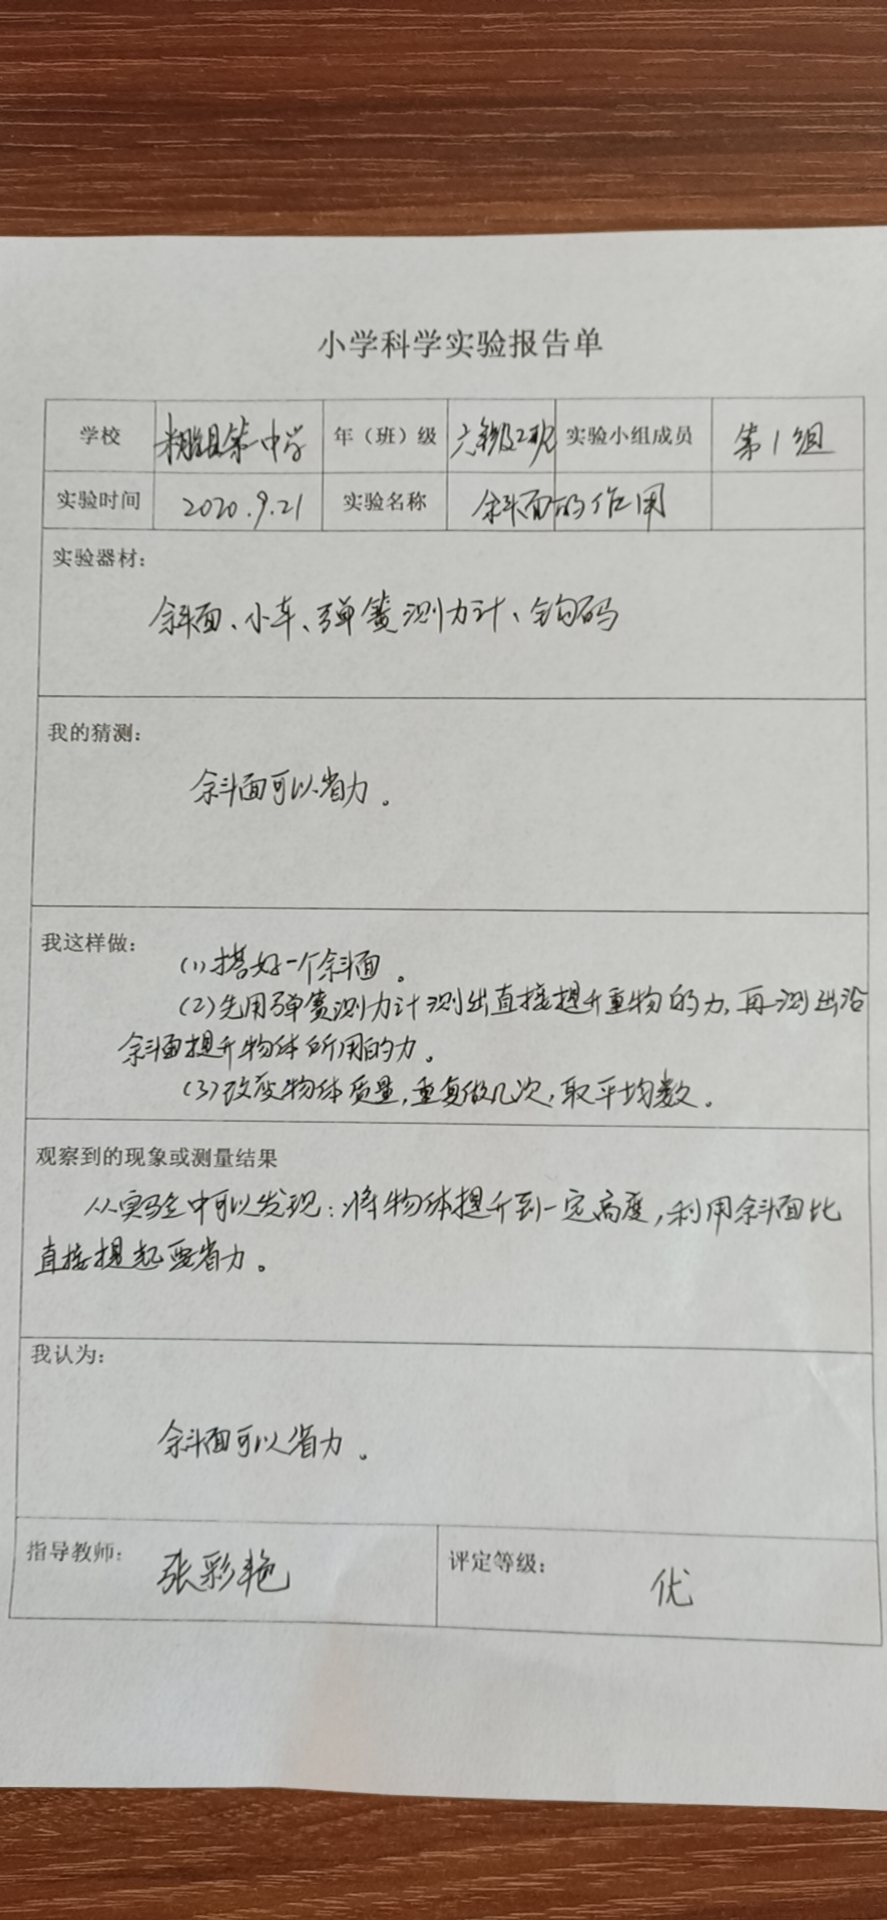 小学科学实验报告单
学校 县第一中学 年（班）级 六年级2班 实验小组成员 第1组
实验时间 2020.9.21 实验名称 斜面的作用
实验器材：
斜面、小车、弹簧测力计、钩码
我的猜测：
斜面可以省力。
我这样做：
(1)搭好一个斜面。
(2)先用弹簧测力计测出直接提升重物的力,再测出沿
斜面提升物体所用的力。
(3)改变物体质量,重复做几次,取平均数。
观察到的现象或测量结果
从实验中可以发现：将物体提升到一定高度,利用斜面比
直接提起要省力。
我认为：
斜面可以省力。
指导教师： 张彩艳 评定等级： 优